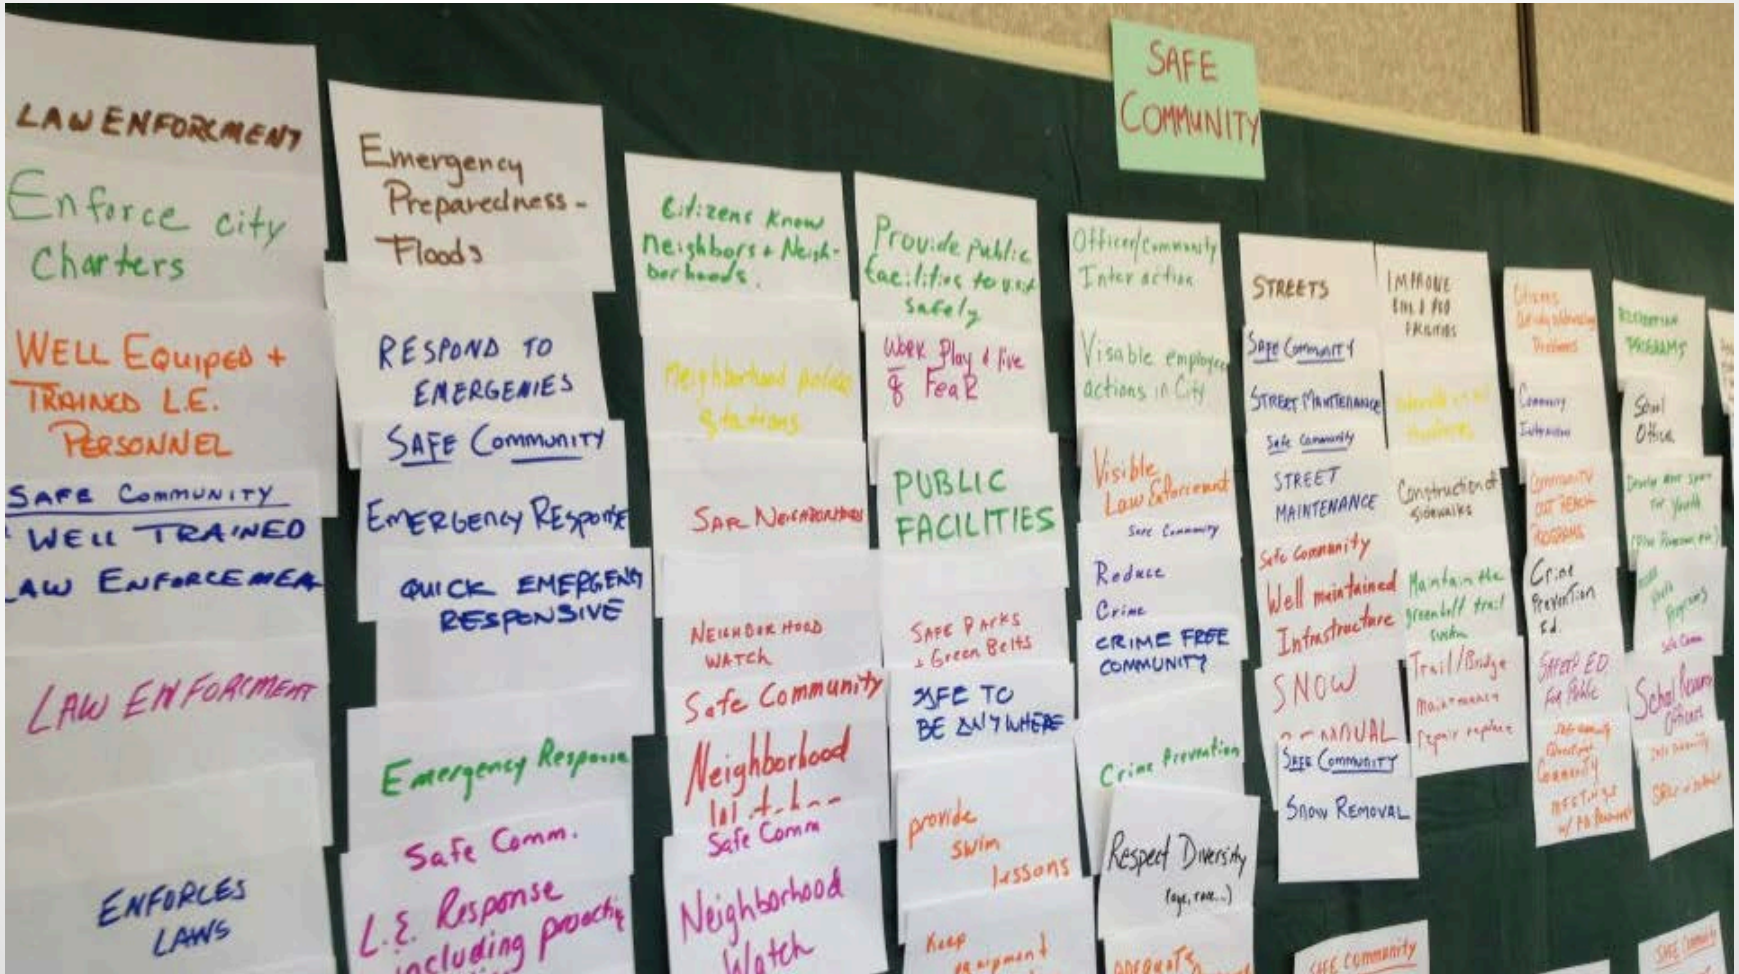 SAFE
COMMUNITY
LAW ENFORCMENT
Enforce city
Charters
WELL EQUIPED +
TRAINED L.E.
PERSONNEL
SAFE COMMUNITY
WELL TRAINED
LAW ENFORCEMEN
LAW ENFORCMENT
ENFORCES
LAWS
Emergency
Preparedness -
Floods
RESPOND TO
EMERGENIES
SAFE COMMUNITY
EMERGENCY RESPONSE
QUICK EMERGENCY
RESPONSIVE
Emergency Response
Safe Comm.
L.E. Response
including proactiv
Citizens Know
neighbors + Neigh-
borhoods.
Neighborhood police
stations
NEIGHBORHOOD
WATCH
Safe Community
Neighborhood
Safe Comm
Neighborhood
Watch
Provide public
facilities to visit
safely
Work Play & live
Fear
PUBLIC
FACILITIES
SAFE PARKS
+ Green Belts
SAFE TO
BE ANYWHERE
provide
swim
lessons
Keep
Officer/Community
Interaction
Visable employee
actions in City
Visible
Law Enforcement
Safe Community
Reduce
Crime
CRIME FREE
COMMUNITY
Crime Prevention
Respect Diversity
(age, race...)
STREETS
SAFE COMMUNITY
STREET MAINTENANCE
Safe Community
STREET
MAINTENANCE
Safe Community
Well maintained
Infrastructure
SNOW
SAFE COMMUNITY
SNOW REMOVAL
SAFE COMMUNITY
IMPROVE
BIKE & PED
FACILITIES
Construction of
sidewalks
Maintain the
greenbelt trail
system
Trail/Bridge
maintenance
repair replace
Citizens
Problems
Community
COMMUNITY
OUT REACH
PROGRAMS
Crime
Prevention
Ed.
SAFETY ED.
For Public
Community
MEETINGS
RECREATION
PROGRAMS
School
Office
for youth
Programs
Safe Comm
School Resource
Officers
SAFE COMMUNITY